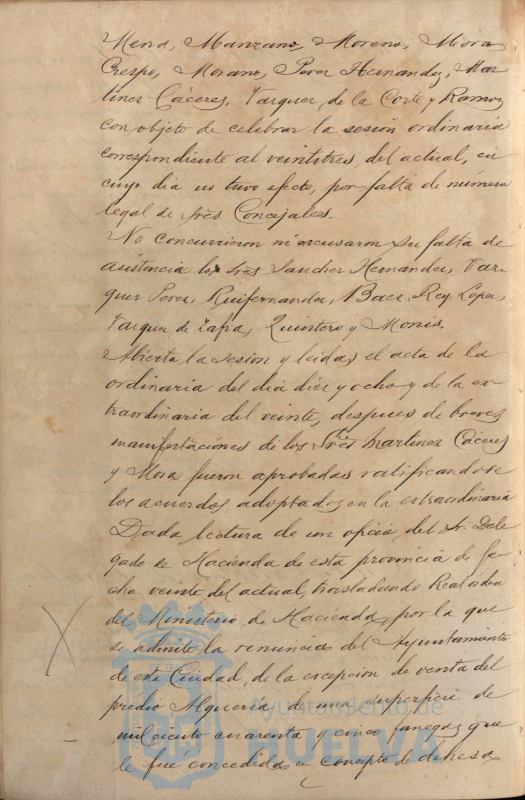 Mena, Manzano, Moreno, Mora
Crespo, Morano, Perez Hernandez, Mar
tinez Cáceres, Vazquez de la Corte y Ramos
con objeto de celebrar la sesion ordinaria
correspondiente al veintitres del actual, en
cuyo dia no tuvo efecto, por falta de número
legal de Sres Concejales.
No concurrieron ni escusaron su falta de
asistencia los Sres Sanchez Hernandez, Vaz
quez Perez, Ruifernandez, Baez, Rey, Lopez,
Vazquez de Zafra, Quintero y Monis.
Abierta la sesion y leidas el acta de la
ordinaria del dia diez y ocho y de la ex
traordinaria del veinte, despues de breves
manifestaciones de los Sres Martinez Cáceres
y Mora fueron aprobadas ratificandose
los acuerdos adoptados en la estraordinaria
Dada lectura de un oficio del Sr. Dele
gado de Hacienda de esta provincia de fe
cha veinte del actual, trasladando Real orden
del Ministerio de Hacienda, por la que
se admite la renuncia del Ayuntamiento
de esta Ciudad, de la escepcion de venta del
predio Alqueria de una superficie de
mil ciento cuarenta y cinco fanegas que
le fué concedida en concepto de dehesa
Ayuntamiento de
HUELVA